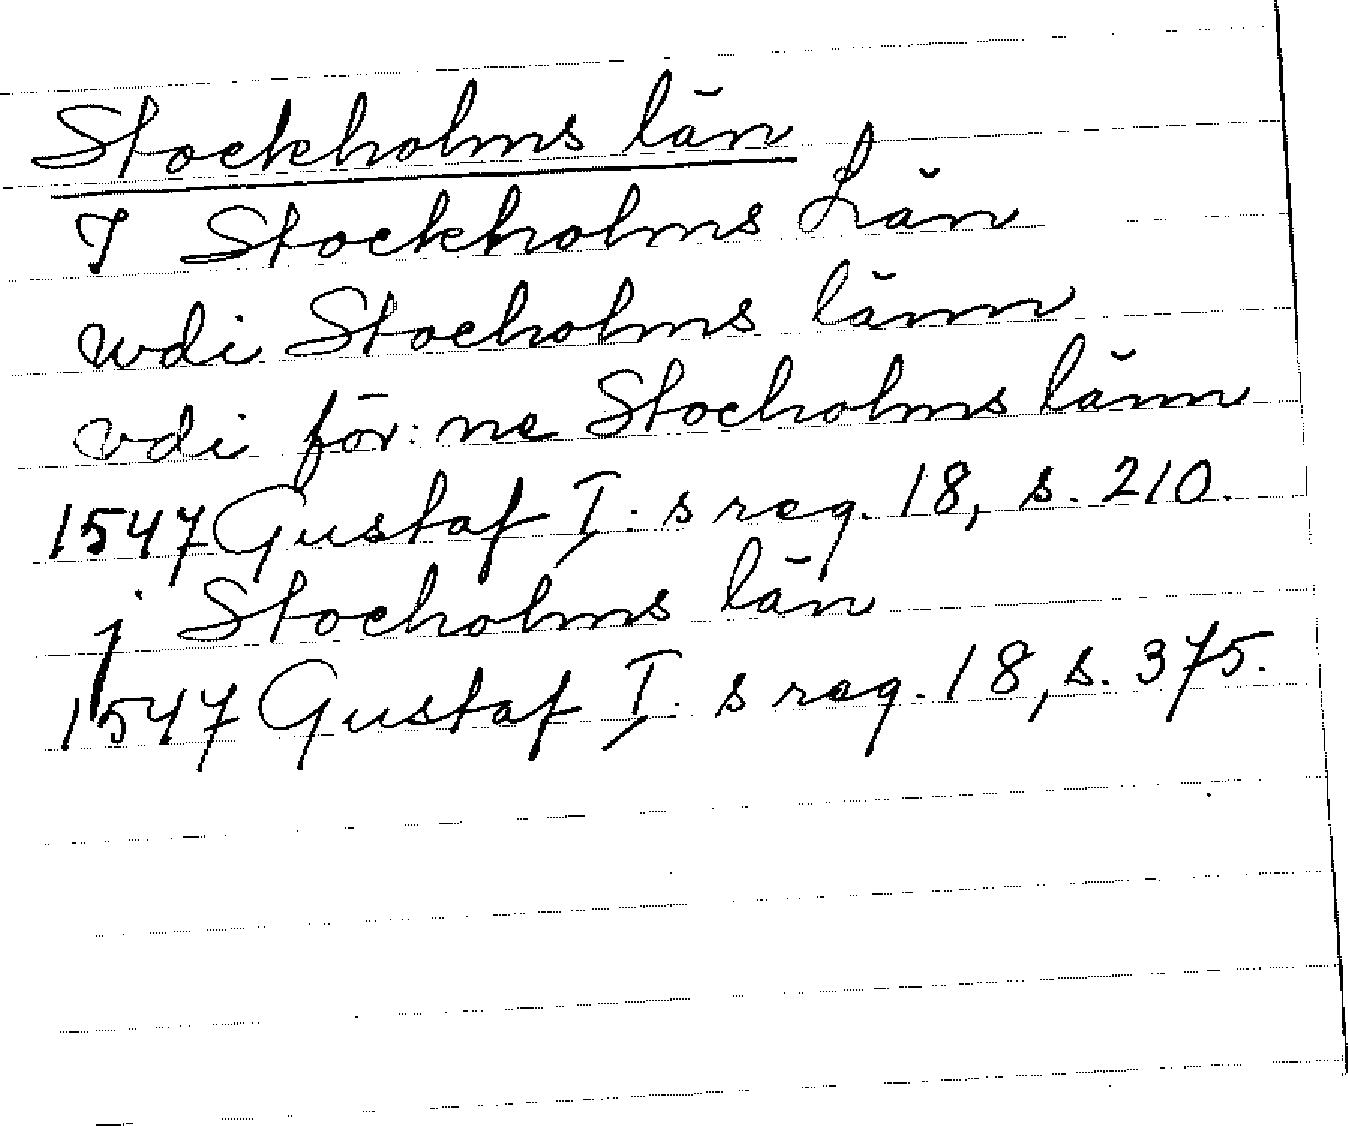 Stockholms län
I Stockholms Län
wdi Stocholms länn
vdi för:ne Stocholms länn
1547 Gustaf I.s reg. 18, s. 210.
j Stocholms län
1547 Gustaf I.s reg. 18, s. 375.